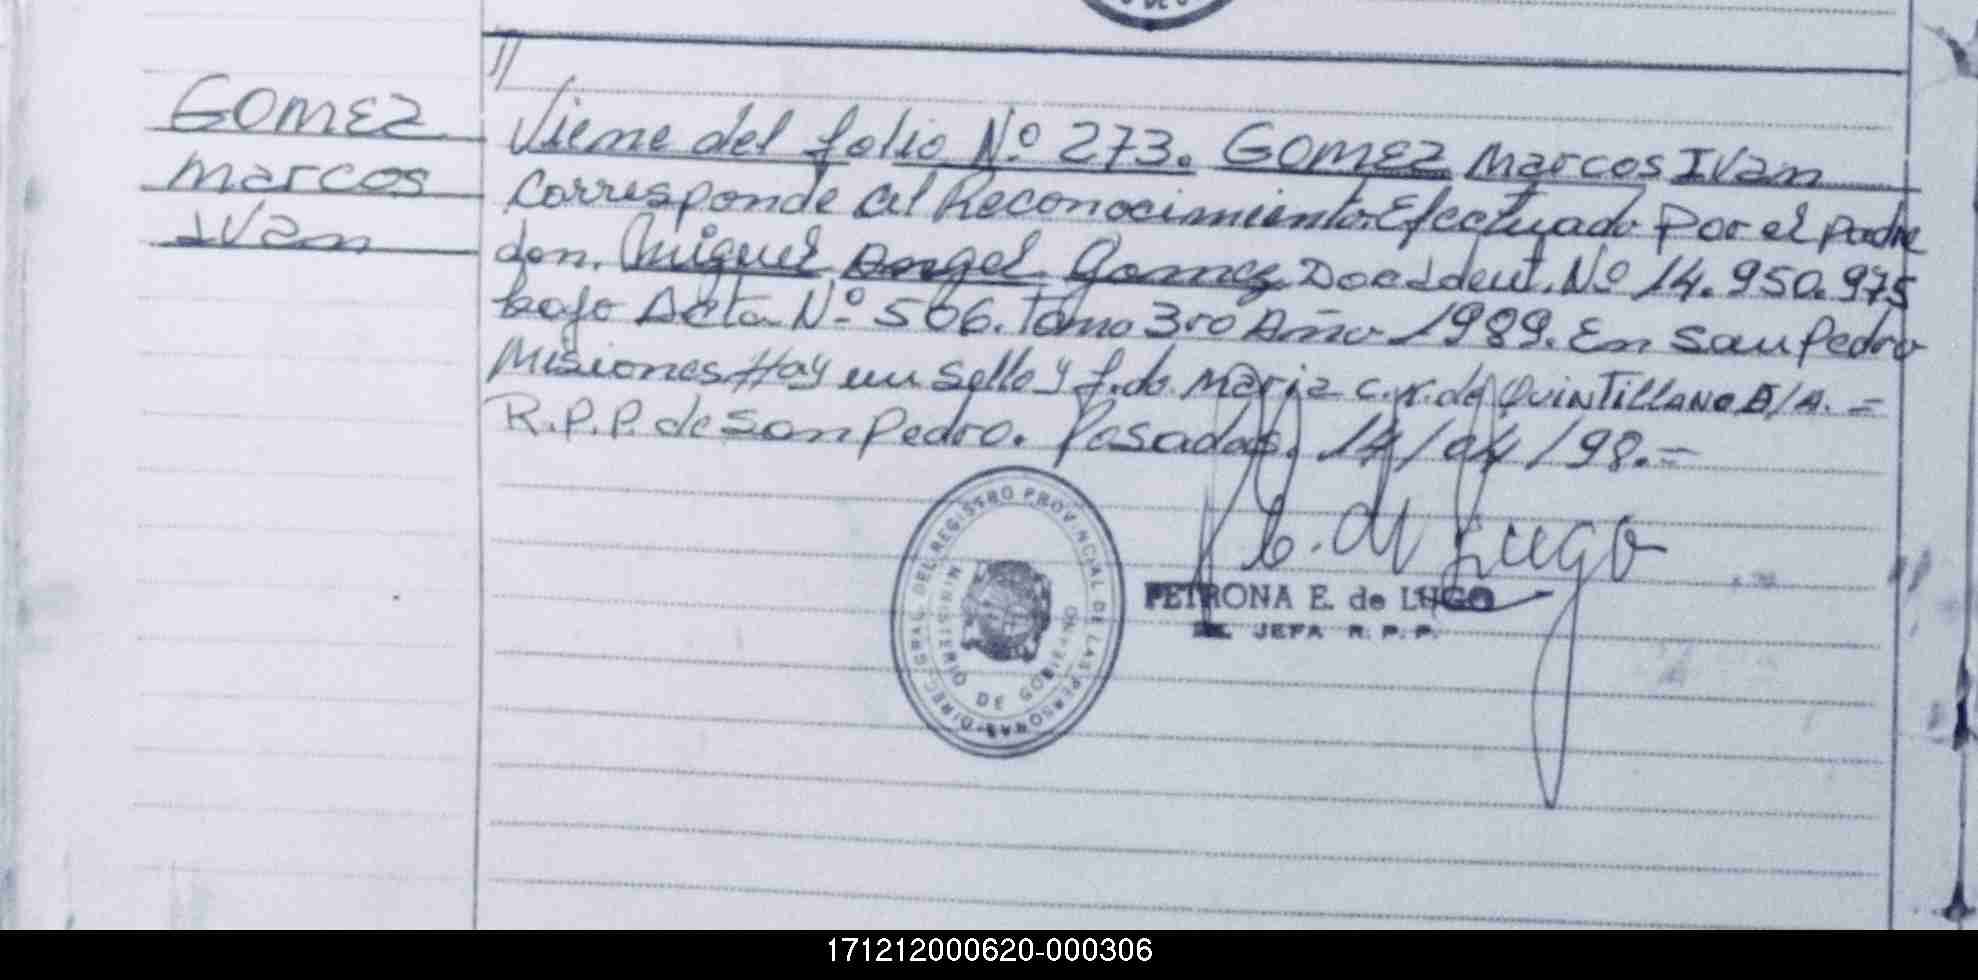 GOMEZ
Marcos
Ivan
//
Viene del folio Nº 273. GOMEZ Marcos Ivan
Corresponde al Reconocimiento Efectuado Por el padre
don. Miguel Angel Gomez Doc Ident. Nº 14.950.975
bajo Acta Nº 506. Tomo 3ro Año 1989. En San Pedro
Misiones Hay un sello y f.do. Maria C. K. de QUINTILLANO A/A. =
R.P.P. de San Pedro. Posadas, 14/04/98. =
DIREC. GRAL. DEL REGISTRO PROVINCIAL DE LAS PERSONAS
MINISTERIO DE GOBIERNO
E. de Lugo
PETRONA E. de LUGO
JEFA R. P. P.
171212000620-000306